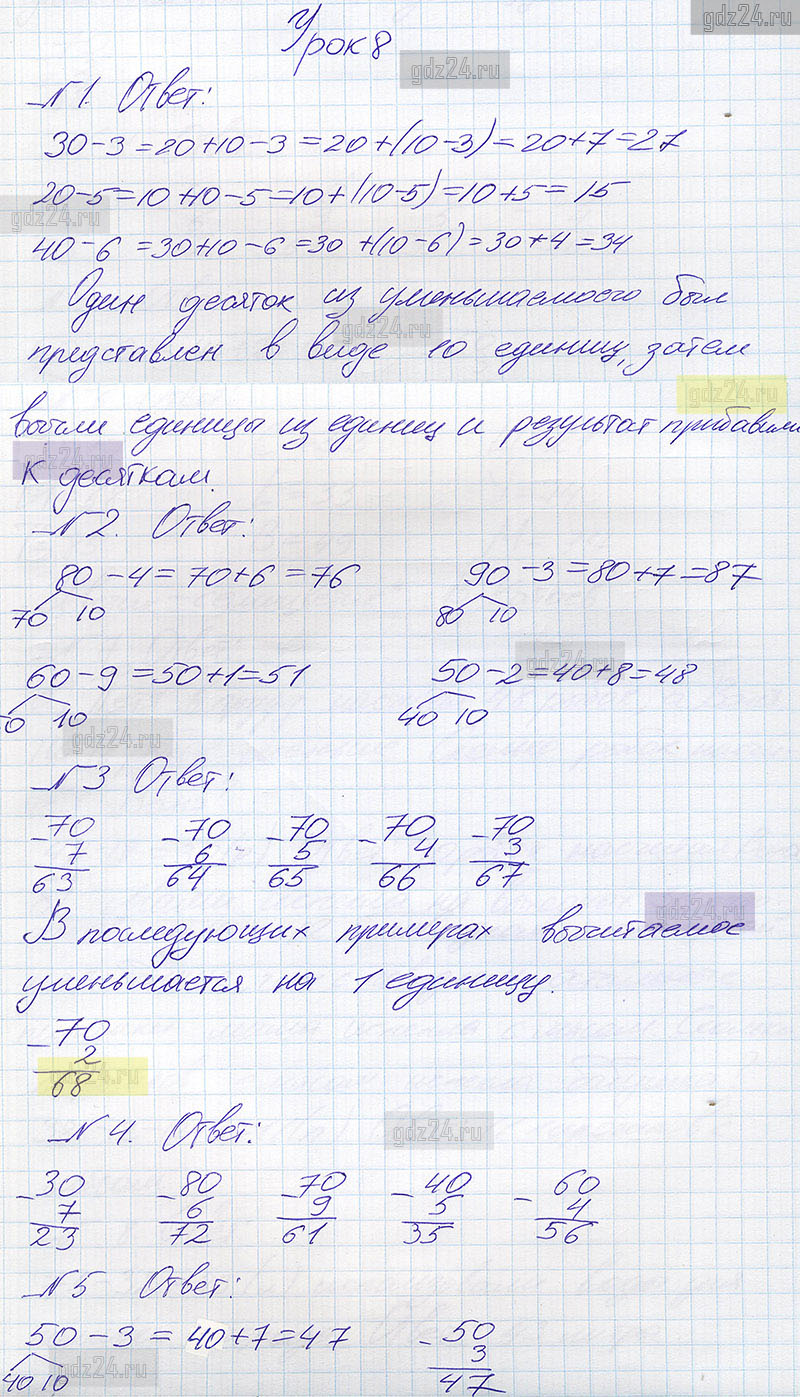 gdz24.ru
Урок 8
gdz24.ru
N 1. Ответ:
30-3=20+10-3=20+(10-3)=20+7=27
20-5=10+10-5=10+(10-5)=10+5=15
gdz24.ru
40-6=30+10-6=30+(10-6)=30+4=34
Один десяток из уменьшаемоего был
gdz24.ru
представлен в виде 10 единиц, затем
gdz24.ru
вычли единицы из единиц и результат прибавили
gdz24.ru
к десяткам.
N 2. Ответ:
80-4=70+6=76 90-3=80+7=87
70 10 80 10
gdz24.ru
60-9=50+1=51 50-2=40+8=48
0 10 40 10
gdz24.ru
N 3 Ответ:
-70 -70 -70 -70 -70
7 6 5 4 3
63 64 65 66 67
gdz24.ru
В последующих примерах вычитаемое
уменьшается на 1 единицу.
-70
2
gdz24.ru
68
N 4. Ответ:
gdz24.ru
-30 -80 -70 -40 -60
7 6 9 5 4
23 72 61 35 56
N 5 Ответ:
50-3=40+7=47 -50
3
gdz24.ru
40 10 47